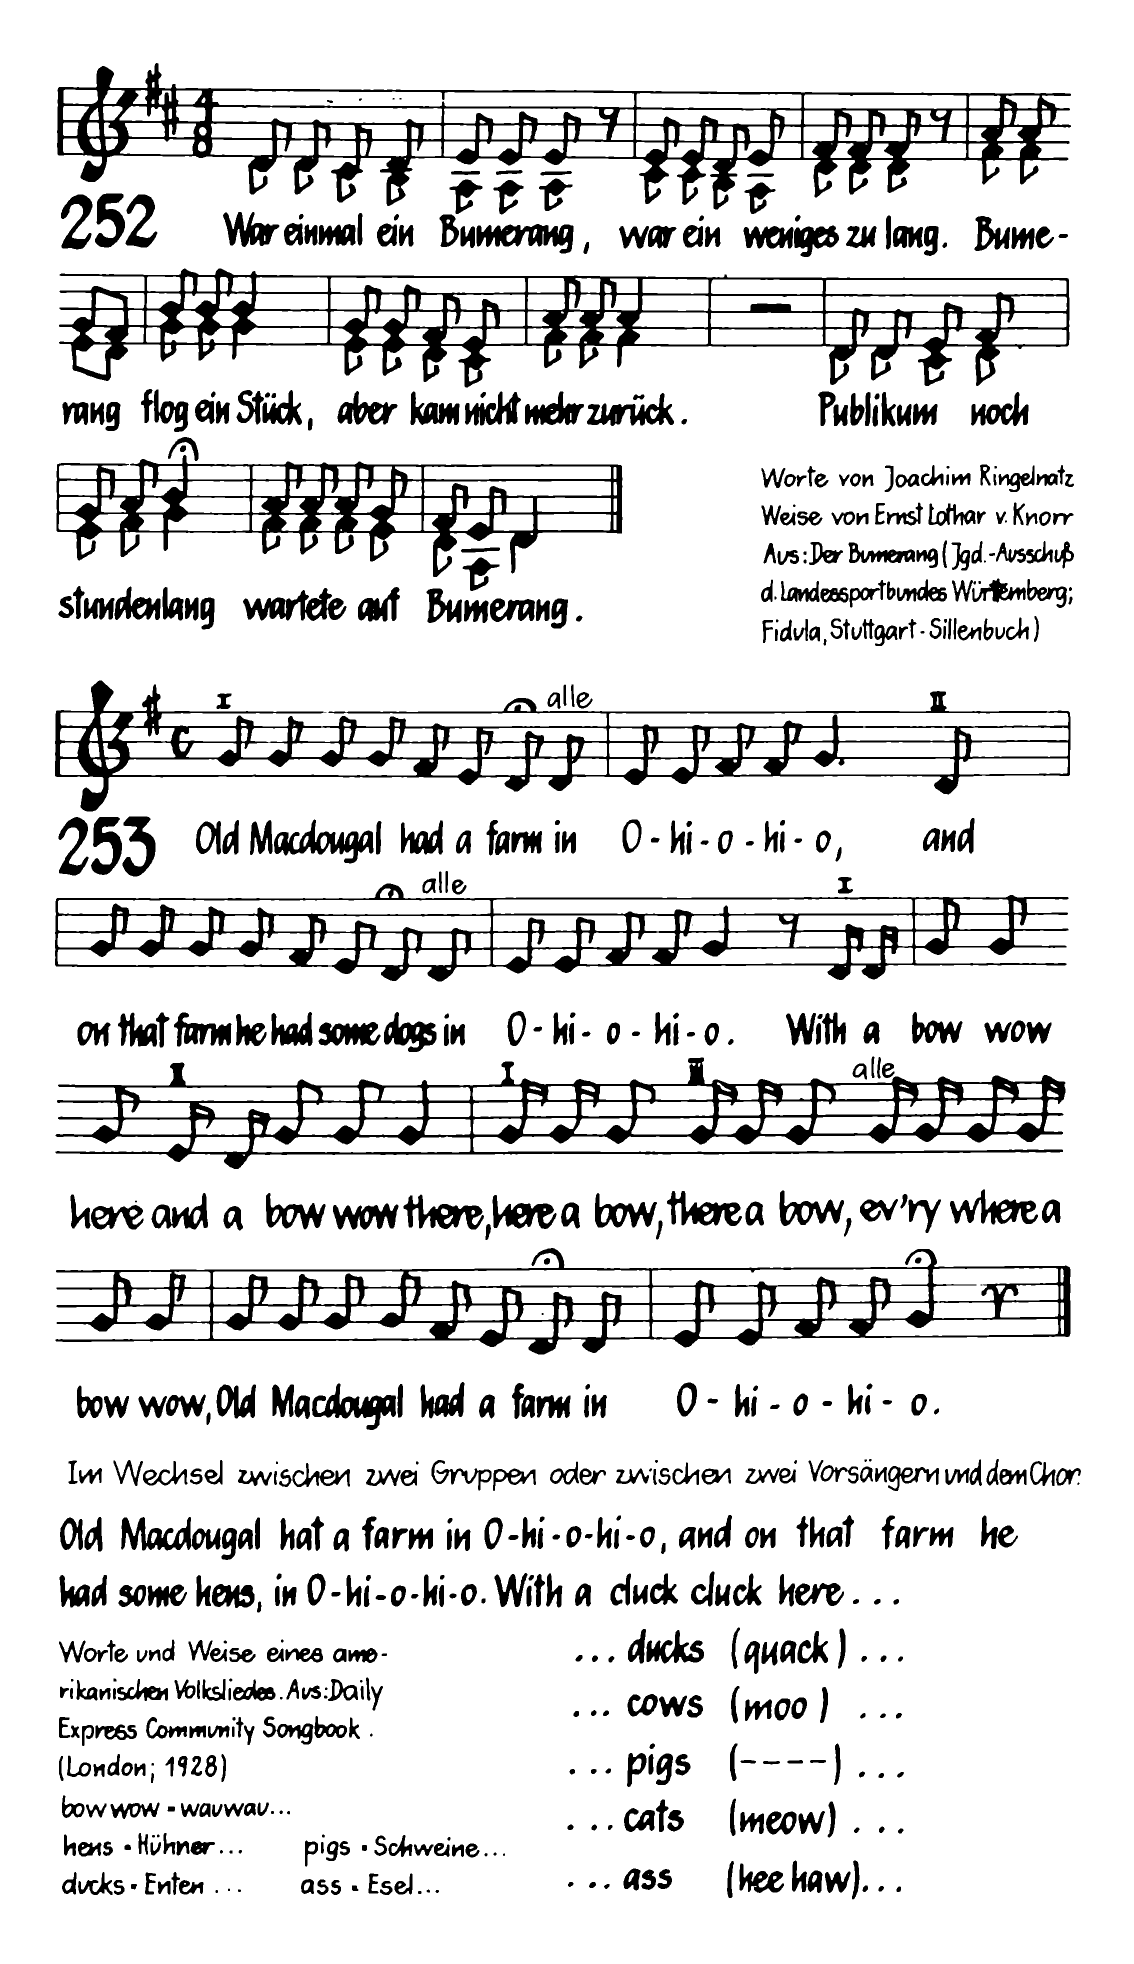 4
8
252
War einmal ein Bumerang, war ein weniges zu lang. Bume-
rang flog ein Stück, aber kam nicht mehr zurück. Publikum noch
stundenlang wartete auf Bumerang.
Worte von Joachim Ringelnatz
Weise von Ernst Lothar v. Knorr
Aus: Der Bumerang (Jgd.-Ausschuß
d. Landessportbundes Württemberg;
Fidula, Stuttgart-Sillenbuch)
I alle II
253
Old Macdougal had a farm in O-hi-o-hi-o, and
alle I
on that farm he had some dogs in O-hi-o-hi-o. With a bow wow
II I II alle
here and a bow wow there, here a bow, there a bow, ev'ry where a
bow wow, Old Macdougal had a farm in O-hi-o-hi-o.
Im Wechsel zwischen zwei Gruppen oder zwischen zwei Vorsängern und dem Chor.
Old Macdougal hat a farm in O-hi-o-hi-o, and on that farm he
had some hens, in O-hi-o-hi-o. With a cluck cluck here...
... ducks (quack) ...
... cows (moo) ...
... pigs (----) ...
... cats (meow) ...
... ass (hee haw)...
Worte und Weise eines ame-
rikanischen Volksliedes. Aus: Daily
Express Community Songbook.
(London; 1928)
bow wow - wauwau...
hens - Hühner... pigs - Schweine...
ducks - Enten ... ass - Esel...